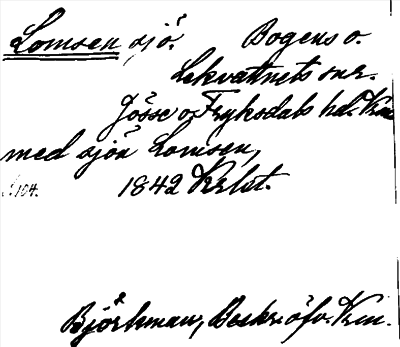 Lomsen sjö. Bogens o.
Lekvattnets snr.
Jösse o. Fryksdals hd. Vrm
med sjön Lomsen,
S. 104. 1842 Krbt.
Björkman, Beskr. öfv. Vrm.